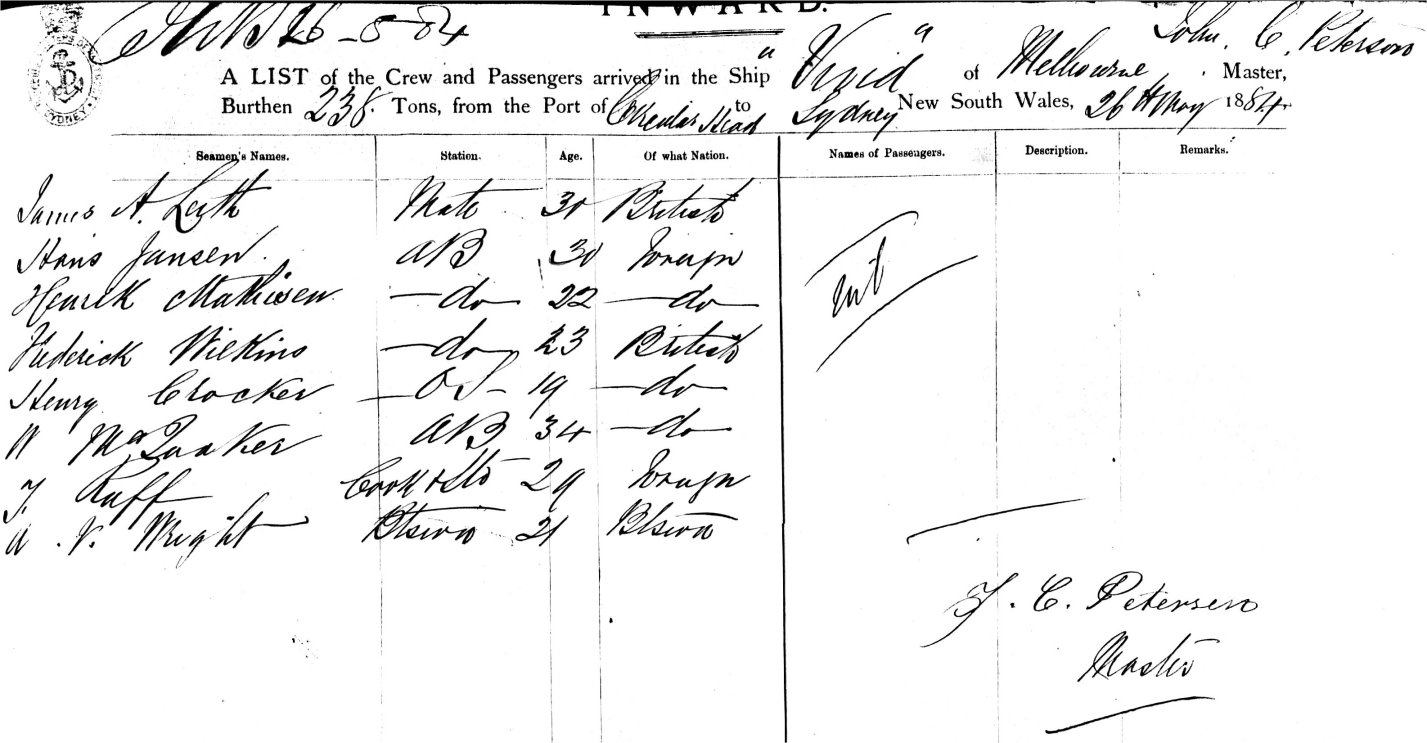 INWARD.
26-5-84
John. C. Peterson
A LIST of the Crew and Passengers arrived in the Ship "Vivid" of Melbourne, Master,
Burthen 238. Tons, from the Port of Circular Head to Sydney New South Wales, 26th May 1884
Seamen's Names. Station. Age. Of what Nation. Names of Passengers. Description. Remarks.
James A. Leith Mate 30 British
Hans Jansen. AB 30 Foreign
Nil
Henrik Mathiesen - do - 22 - do -
Frederick Wilkins - do - 23 British
Henry Crocker - OS - 19 - do -
W McQuaker AB 34 - do -
Ruff Cook & Std 29 Foreign
A. V. Wright 21
J. C. Petersen
Master
SYDNEY